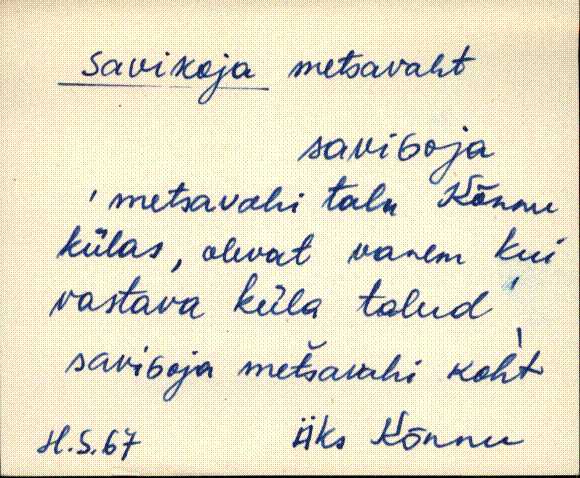 Savikoja metsavaht
savi6oja
' metsavahi talu Kõnnu
külas, olevat vanem kui
vastava küla talud '
savi6oja metšavahi koht
H.S.67 Üks Kõnnu